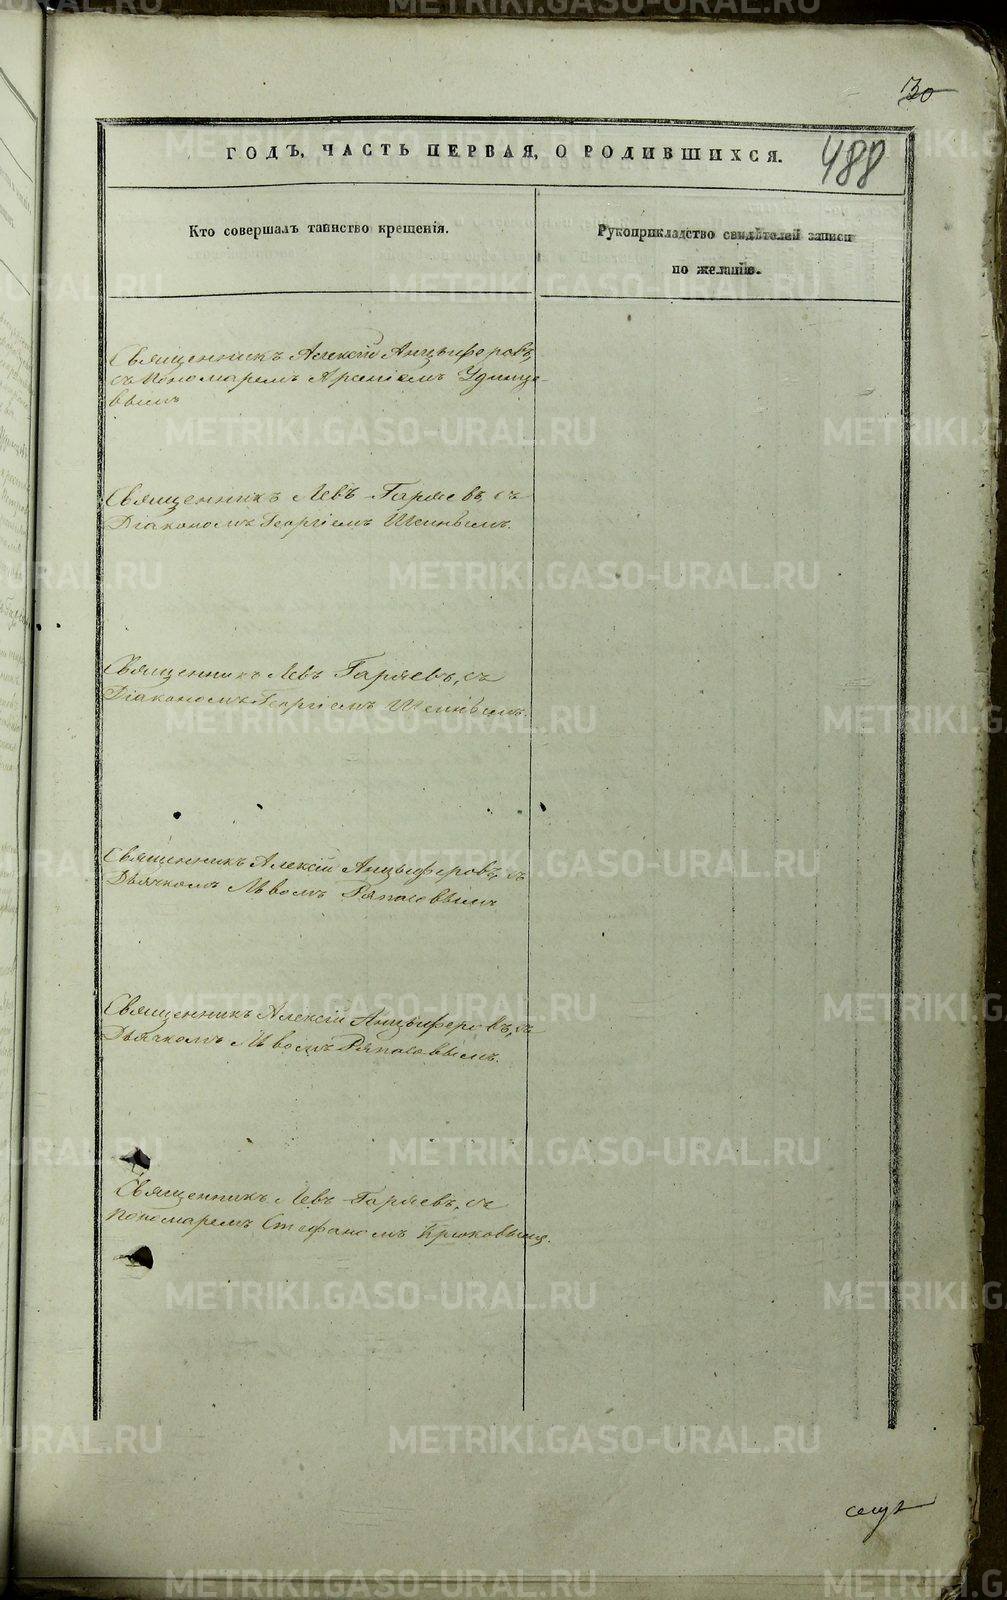 30
ГОДЪ, ЧАСТЬ ПЕРВАЯ, О РОДИВШИХСЯ.
488
Кто совершалъ таинство крещенія.
Рукоприкладство свидѣтелей записи
по желанію.
Священникъ Алексій Анцыферовъ,
съ Пономаремъ Арсеніемъ Удинце-
вымъ
Священникъ Левъ Гаряевъ, съ
Діакономъ Георгіемъ Шеинымъ.
Священникъ Левъ Гаряевъ, съ
Діакономъ Георгіемъ Шеинымъ.
Священникъ Алексій Анцыферовъ, съ
Дьячкомъ Львомъ
Священникъ Алексій Анцыферовъ, съ
Дьячкомъ Львомъ
Священникъ Левъ Гаряевъ, съ
Пономаремъ Стефаномъ Крюковымъ.
METRIKI.GASO-URAL.RU